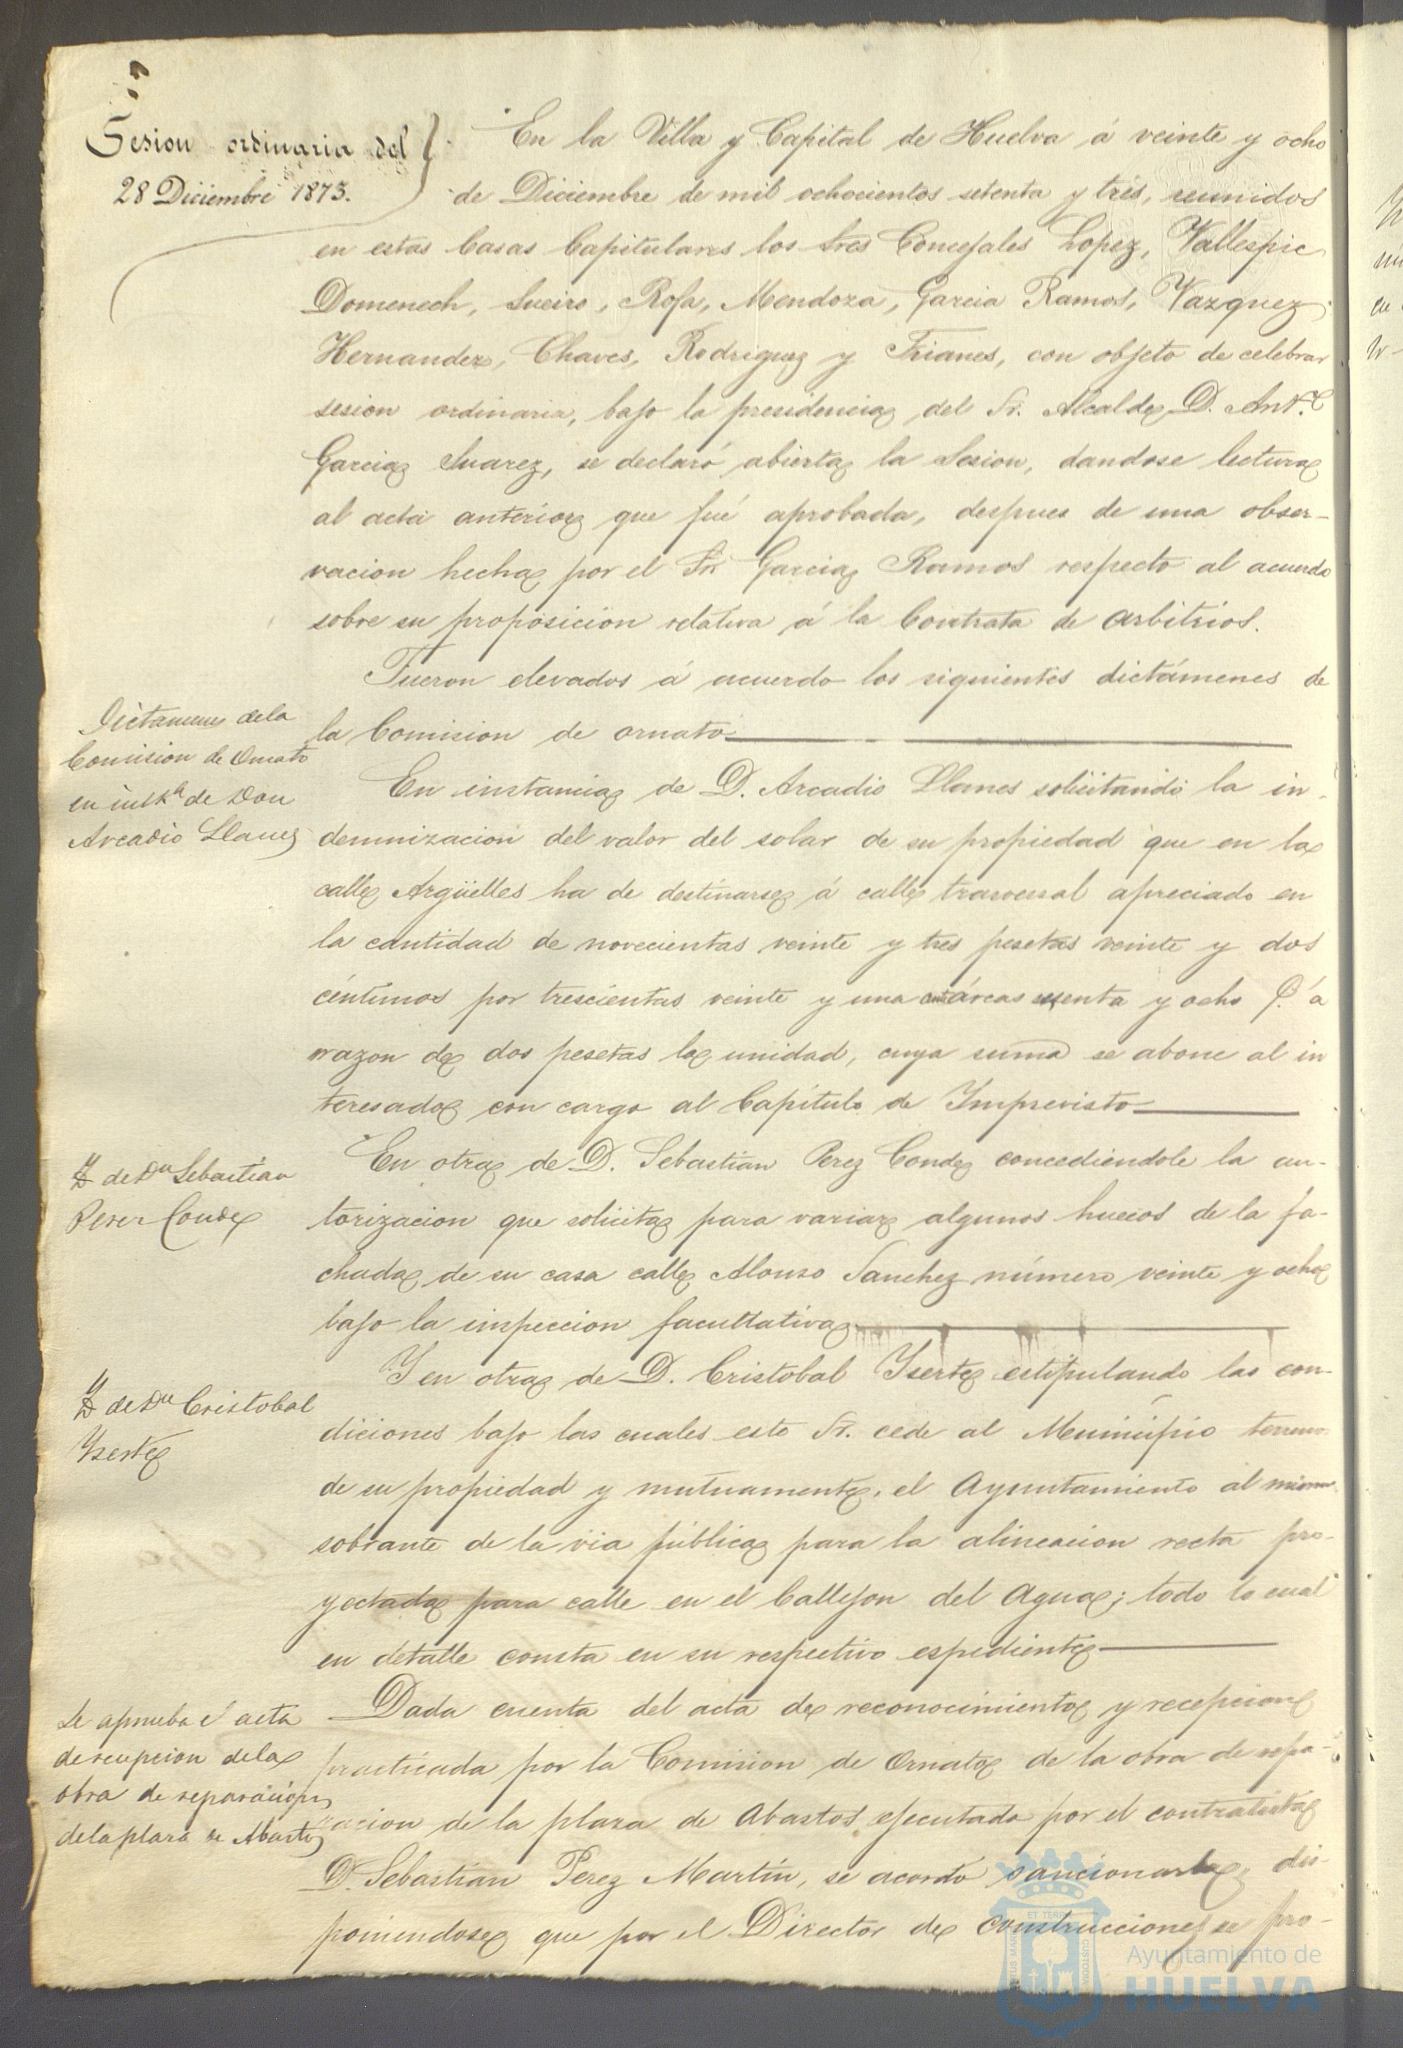 Sesion ordinaria del
28 Diciembre 1873.
En la Villa y Capital de Huelva á veinte y ocho
de Diciembre de mil ochocientos setenta y trés, reunidos
en estas Casas Capitulares los Sres Concejales Lopez, Vallespin
Domenech, Sueiro, Rofa, Mendoza, Garcia Ramos, Vazquez
Hernandez, Chaves, Rodriguez y Trianes, con objeto de celebrar
sesion ordinaria, bajo la presidencia del Sr. Alcalde D. Ant.º
Garcia Suarez, se declaró abierta la Sesion, dandose lectura
al acta anterior que fué aprobada, despues de una obser-
vacion hecha por el Sr Garcia Ramos respecto al acuerdo
sobre su proposicion relativa á la Contrata de arbitrios.
Fueron elevados á acuerdo los siguientes dictámenes de
la Comision de ornato
Dictamenes de la
Comision de Ornato
en insta de Don
Arcadio Llanes
En instancia de D. Arcadio Llanes solicitando la in-
demnizacion del valor del solar de su propiedad que en la
calle Argüelles ha de destinarse á calle trasversal apreciado en
la cantidad de novecientas veinte y tres pesetas veinte y dos
céntimos por trescientas veinte y una áreas y ocho á
razon de dos pesetas la unidad, cuya suma se abone al in
teresado con cargo al Capítulo de Imprevisto
Yd de Dn Sebastian
Perez Conde
En otra de D. Sebastian Perez Conde concediéndole la au-
torizacion que solicita para variar algunos huecos de la fa-
chada de su casa calle Alonso Sanchez número veinte y ocho
bajo la inspeccion facultativa
Yd de Dn Cristobal
Yserte
Y en otra de D. Cristobal Yserte estipulando las con-
diciones bajo las cuales este Sr. cede al Municipio terreno
de su propiedad y mutuamente, el Ayuntamiento al mismo
sobrante de la via pública para la alineacion recta pro-
yectada para calle en el Callejon del Agua; todo lo cual
en detalle consta en su respectivo espediente
Se aprueba el acta
de recepcion de la
obra de reparacion
de la plaza de Abastos
Dada cuenta del acta de reconocimiento y recepcion
practicada por la Comision de Ornato de la obra de repa-
racion de la plaza de Abastos ejecutada por el contratista
D. Sebastian Perez Martin, se acordó sancionarla, dis-
poniendose que por el Director de construcciones se pro-
Ayuntamiento de
HUELVA